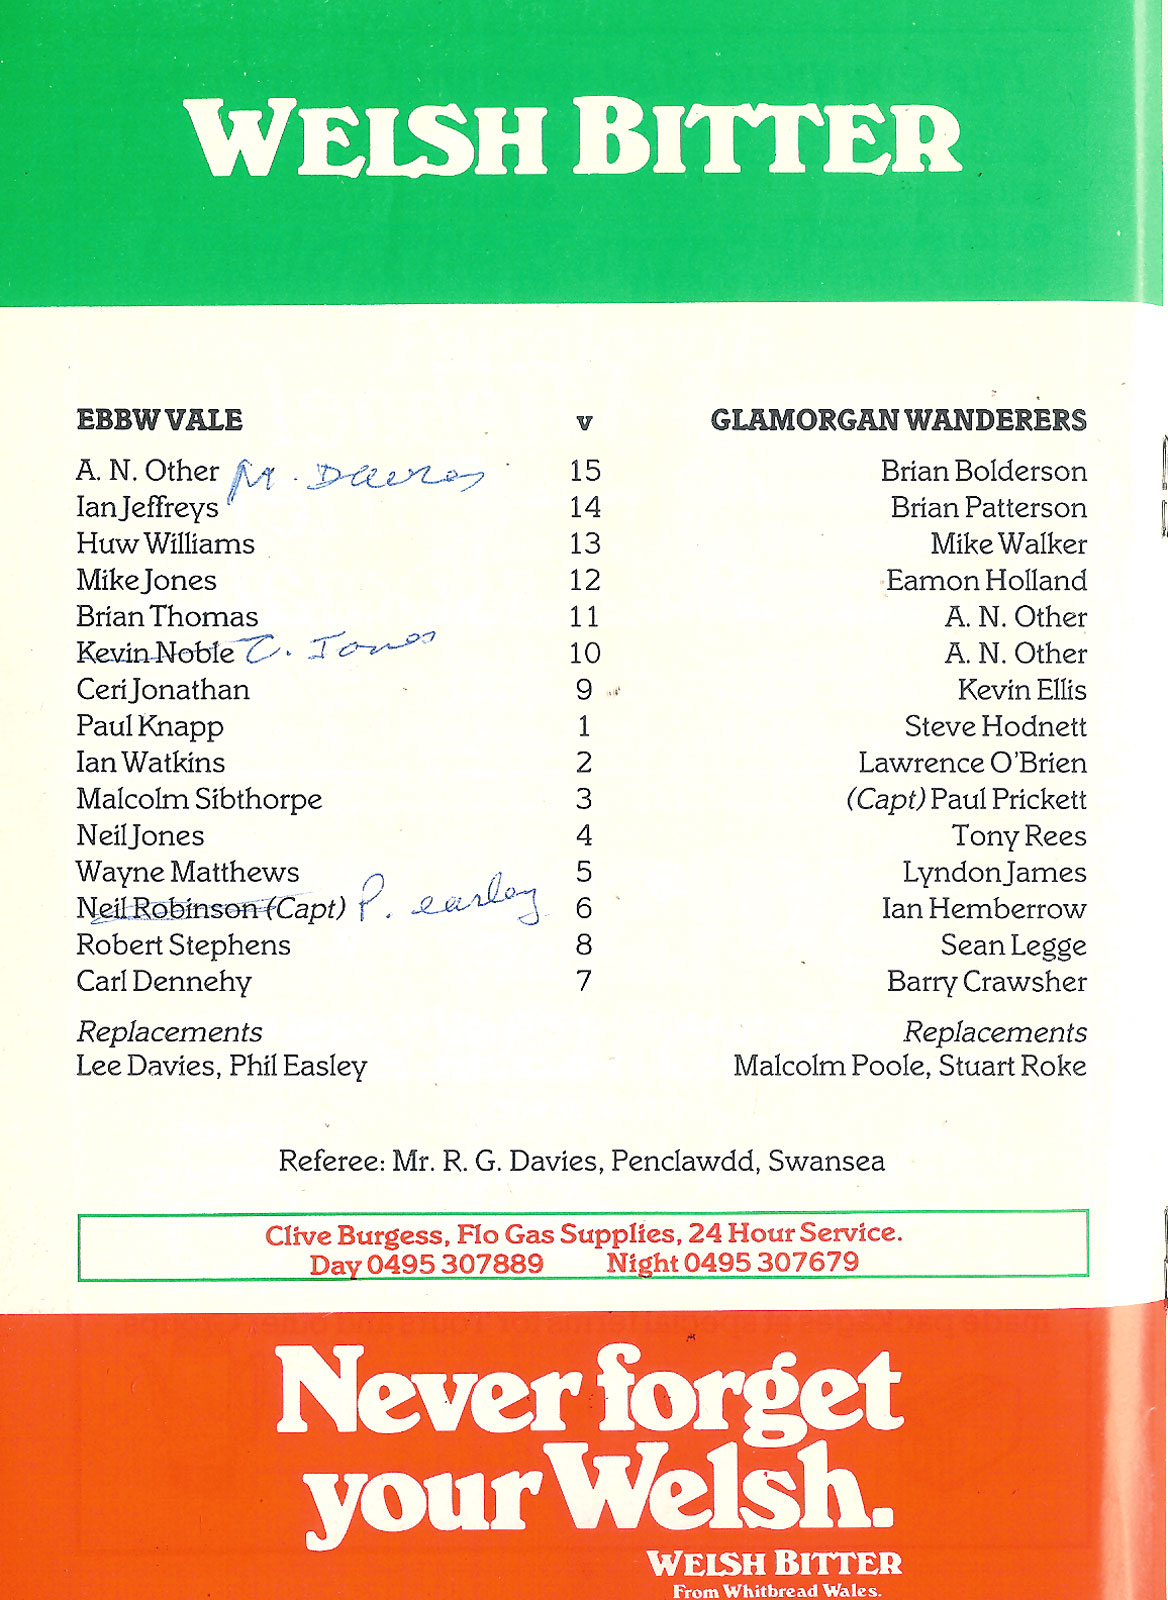 WELSH BITTER
EBBW VALE v GLAMORGAN WANDERERS
A. N. Other M. Davies 15 Brian Bolderson
Ian Jeffreys 14 Brian Patterson
Huw Williams 13 Mike Walker
Mike Jones 12 Eamon Holland
Brian Thomas 11 A. N. Other
Kevin Noble C. Jones 10 A. N. Other
Ceri Jonathan 9 Kevin Ellis
Paul Knapp 1 Steve Hodnett
Ian Watkins 2 Lawrence O'Brien
Malcolm Sibthorpe 3 (Capt) Paul Prickett
Neil Jones 4 Tony Rees
Wayne Matthews 5 Lyndon James
Neil Robinson (Capt) P. easley 6 Ian Hemberrow
Robert Stephens 8 Sean Legge
Carl Dennehy 7 Barry Crawsher
Replacements Replacements
Lee Davies, Phil Easley Malcolm Poole, Stuart Roke
Referee: Mr. R. G. Davies, Penclawdd, Swansea
Clive Burgess, Flo Gas Supplies, 24 Hour Service.
Day 0495 307889 Night 0495 307679
Never forget
your Welsh.
WELSH BITTER
From Whitbread Wales.